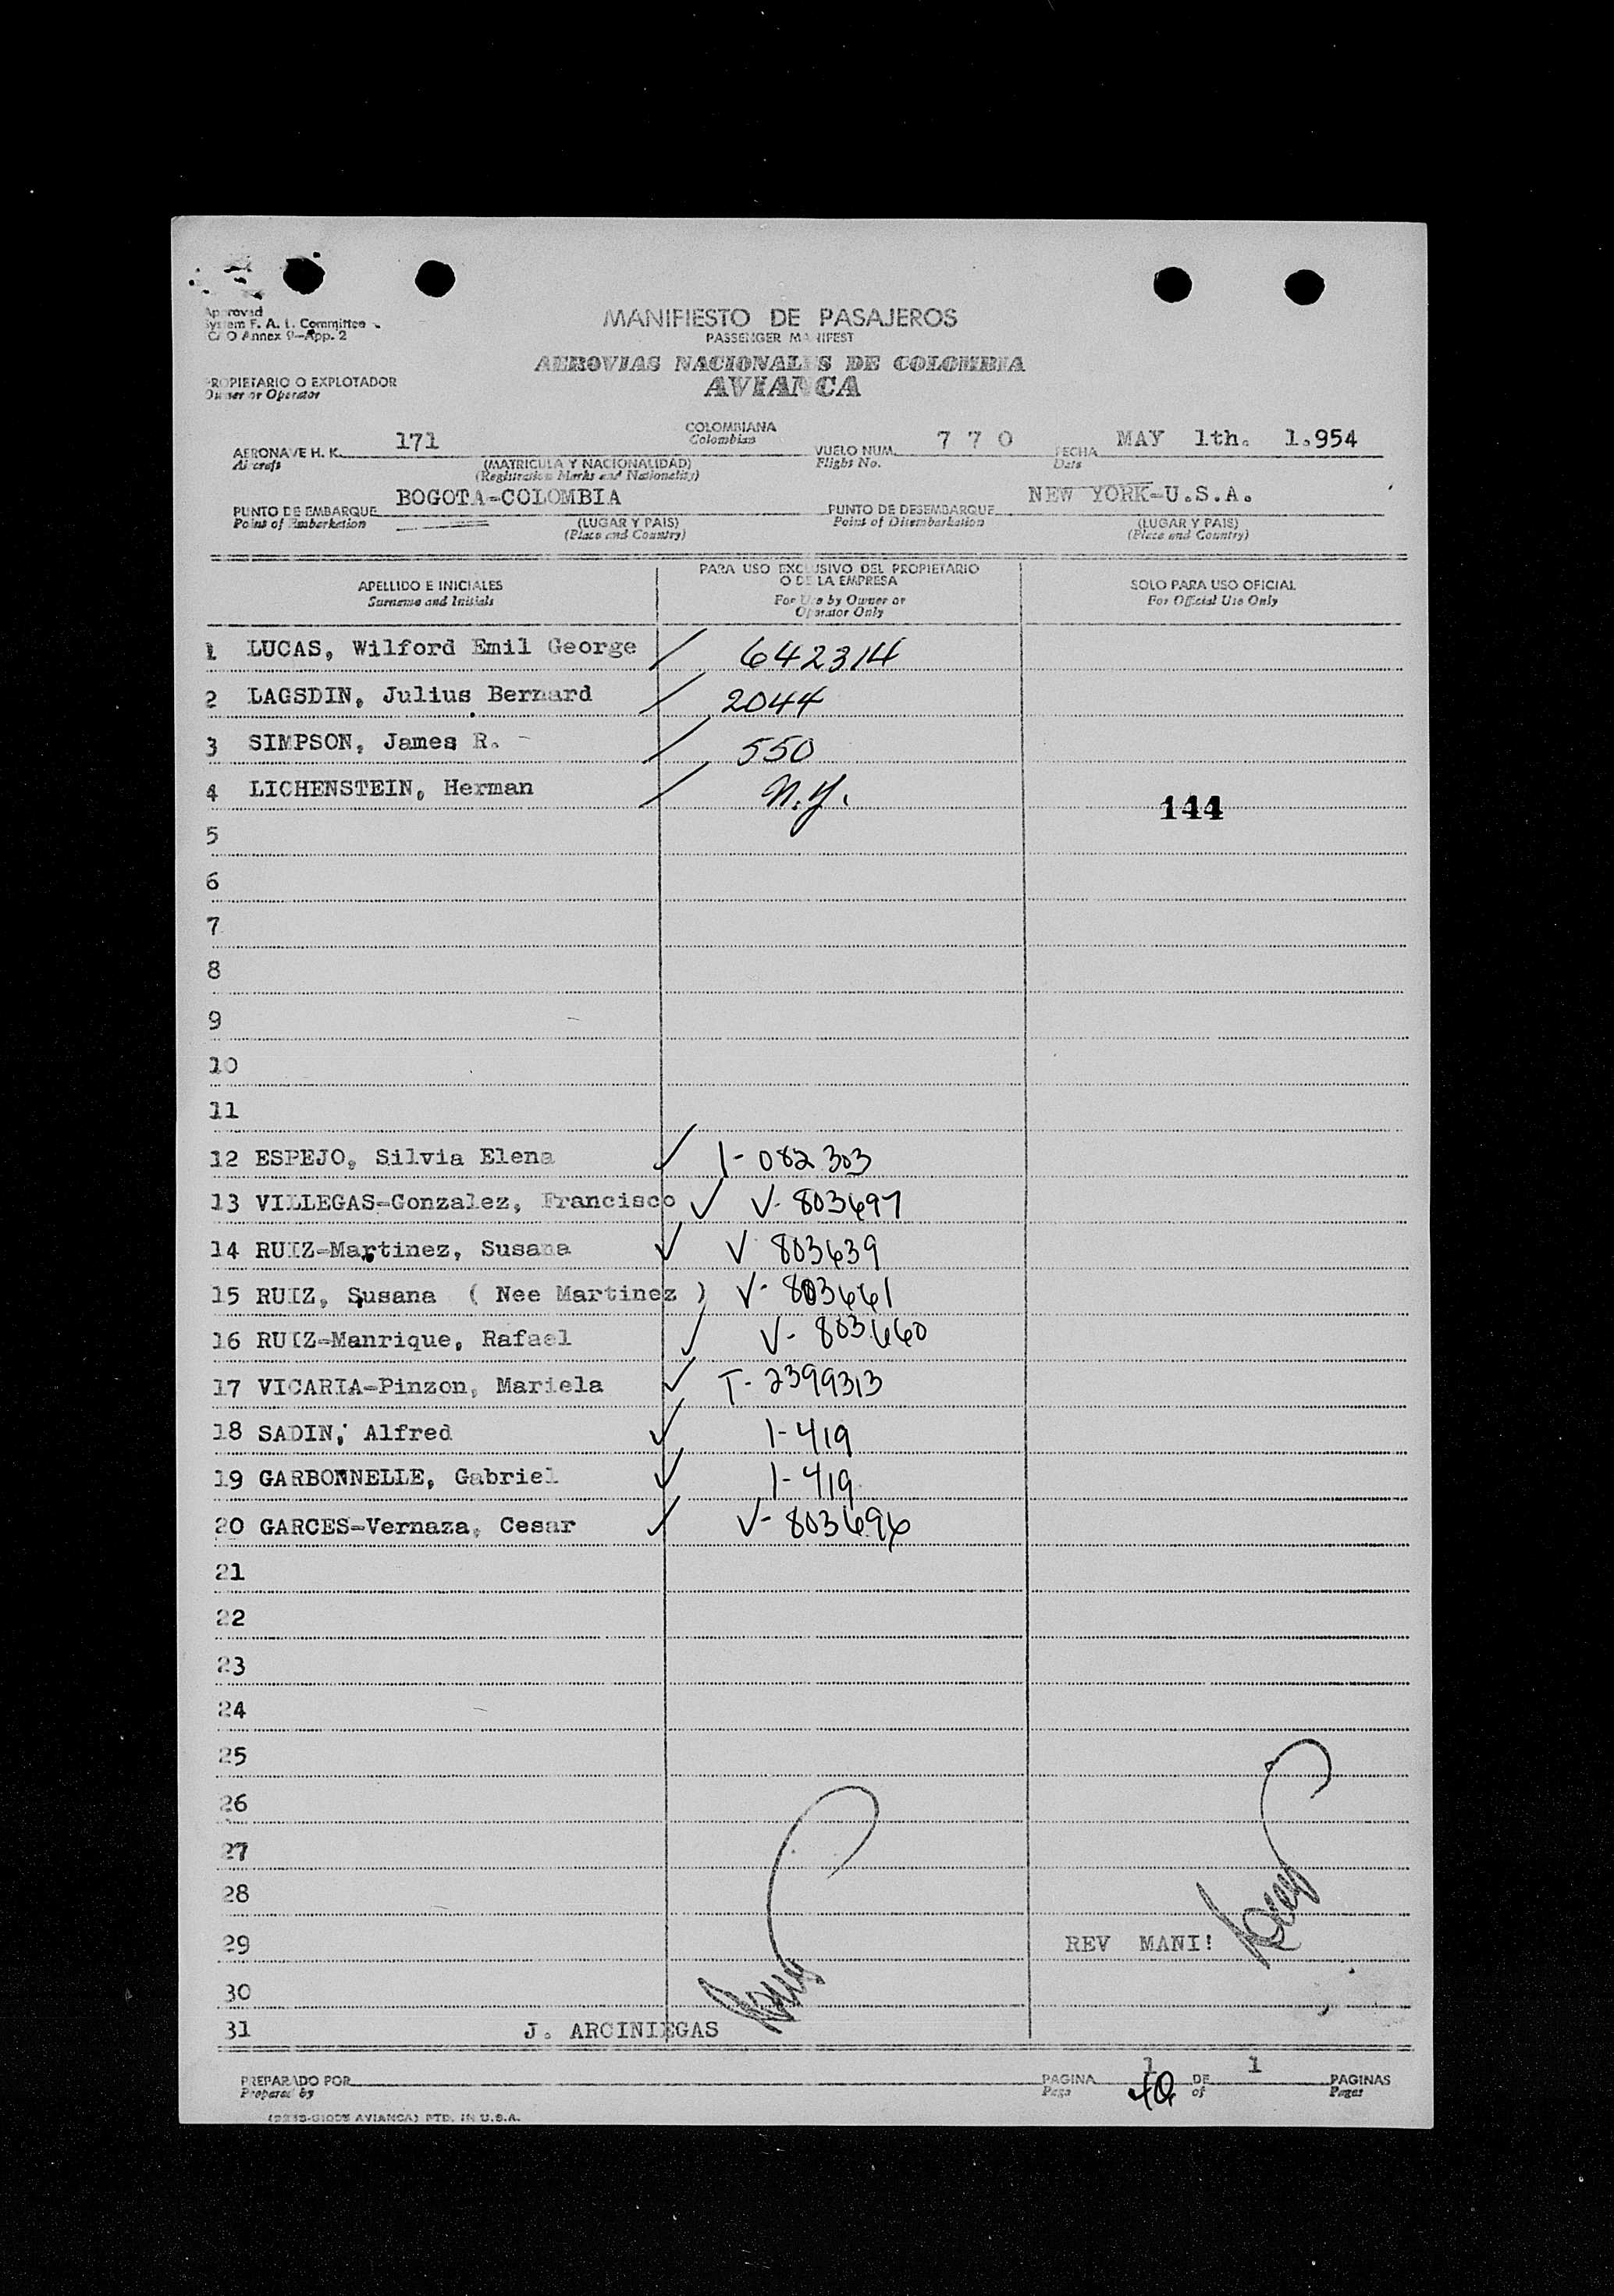 Approved
System F. A. L. Committee
ICAO Annex 9-App. 2
MANIFIESTO DE PASAJEROS
PASSENGER MANIFEST
AEROVIAS NACIONALES DE COLOMBIA
AVIANCA
PROPIETARIO O EXPLOTADOR
Owner or Operator
AERONAVE H. K. 171 COLOMBIANA VUELO NUM. 7 7 0 FECHA MAY 1th. 1.954
Aircraft Colombian Flight No. Date
(MATRICULA Y NACIONALIDAD)
(Registration Marks and Nationality)
PUNTO DE EMBARQUE BOGOTA-COLOMBIA PUNTO DE DESEMBARQUE NEW YORK-U.S.A.
Point of Embarkation (LUGAR Y PAIS) Point of Disembarkation (LUGAR Y PAIS)
(Place and Country) (Place and Country)
APELLIDO E INICIALES PARA USO EXCLUSIVO DEL PROPIETARIO O DE LA EMPRESA SOLO PARA USO OFICIAL
Surname and Initials For Use by Owner or Operator Only For Official Use Only
1 LUCAS, Wilford Emil George / 642314
2 LAGSDIN, Julius Bernard / 2044
3 SIMPSON, James R. / 550
4 LICHENSTEIN, Herman / N.Y. 144
5
6
7
8
9
10
11
12 ESPEJO, Silvia Elena ✓ 1-082303
13 VILLEGAS-Gonzalez, Francisco ✓ V-803697
14 RUIZ-Martinez, Susana ✓ V 803639
15 RUIZ, Susana ( Nee Martinez ) V-803661
16 RUIZ-Manrique, Rafael ✓ V-803660
17 VICARIA-Pinzon, Mariela ✓ T-2399313
18 SADIN, Alfred ✓ 1-419
19 GARBONNELLE, Gabriel ✓ 1-419
20 GARCES-Vernaza, Cesar ✓ V-803696
21
22
23
24
25
26
27
28
29 REV MANI!
30
31 J. ARCINIEGAS
PREPARADO POR PAGINA 1 DE 1 PAGINAS
Prepared by Page 40 of Pages
AVIANCA) PTD. IN U.S.A.